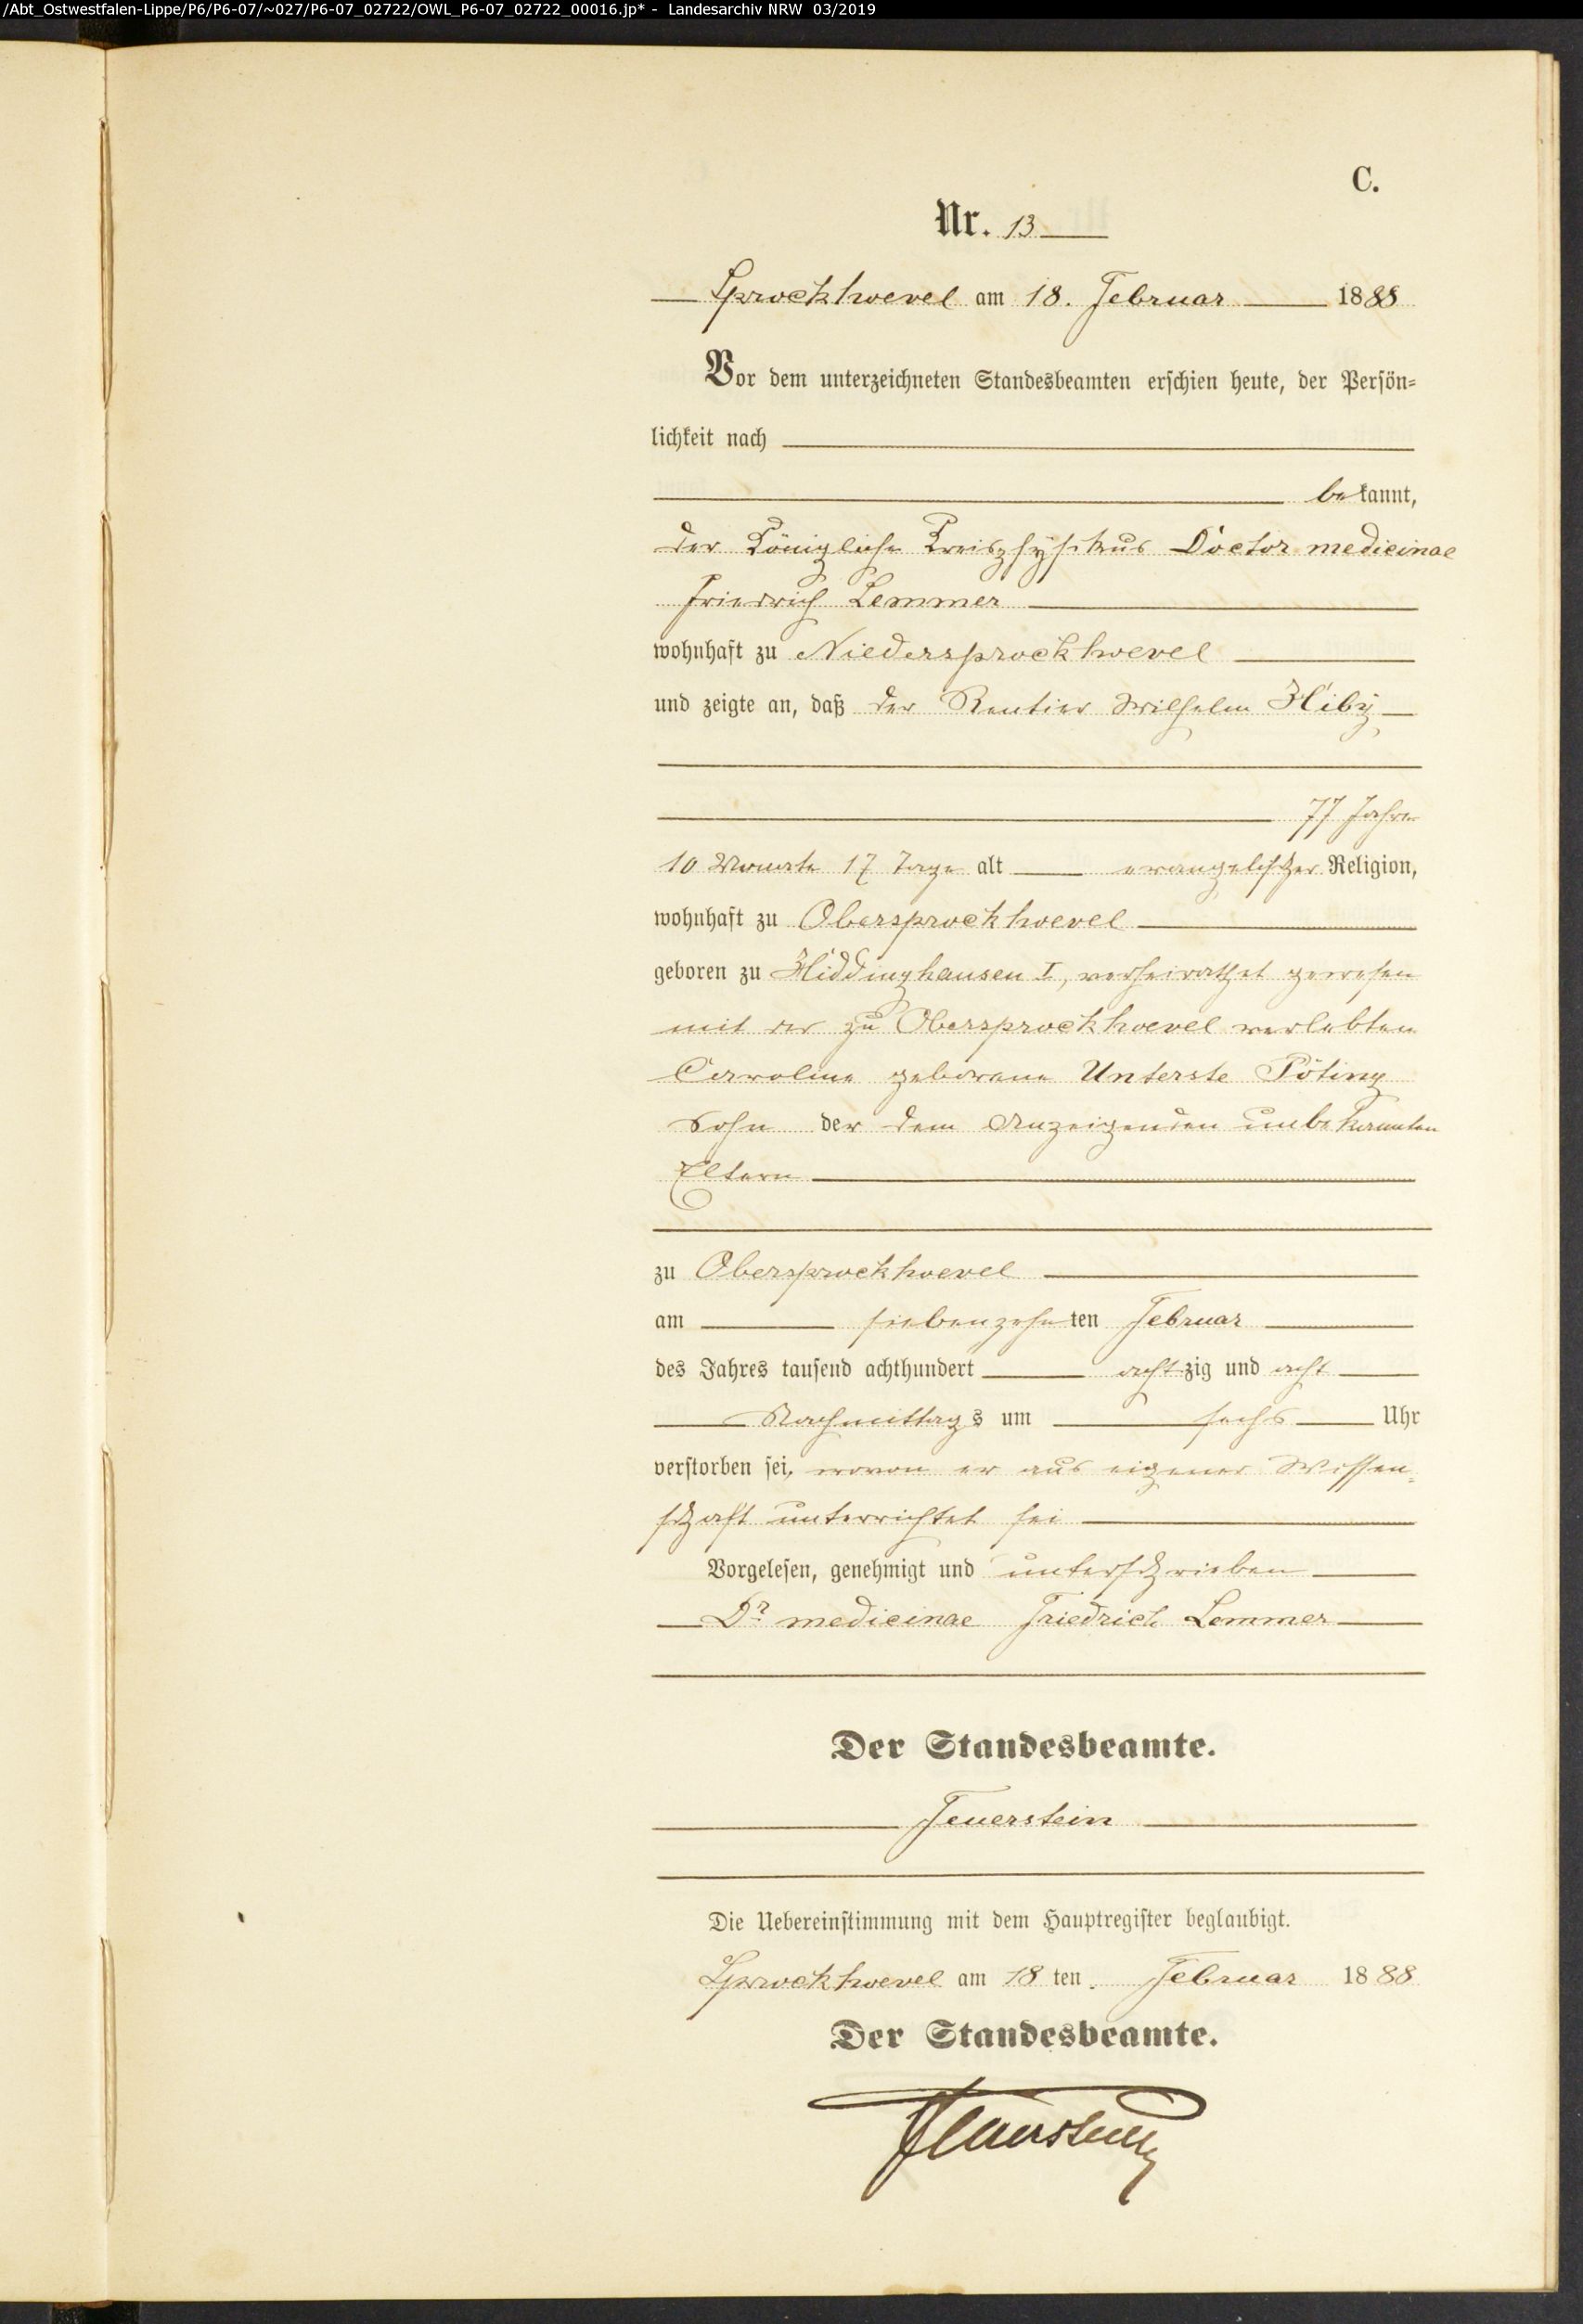 /Abt_Ostwestfalen-Lippe/P6/P6-07/~027/P6-07_02722/OWL_P6-07_02722_00016.jp* - Landesarchiv NRW 03/2019
C.
Nr. 13
Sprockhoevel am 18. Februar 1888
Vor dem unterzeichneten Standesbeamten erschien heute, der Persön-
lichkeit nach
bekannt,
der Königliche Kreisphysikus Doctor medicinae
Friedrich Lemmer
wohnhaft zu Niedersprockhoevel
und zeigte an, daß der Rentier Wilhelm Hiby
77 Jahre
10 Monate 17 Tage alt evangelischer Religion,
wohnhaft zu Obersprockhoevel
geboren zu Hiddinghausen I, verheirathet gewesen
mit der zu Obersprockhoevel verlebten
Caroline geborene Unterste Pöting
Sohn der dem Anzeigenden unbekannten
Eltern
zu Obersprockhoevel
am siebenzehnten Februar
des Jahres tausend achthundert achtzig und acht
Nachmittags um sechs Uhr
verstorben sei, wovon er aus eigener Wissen-
schaft unterrichtet sei
Vorgelesen, genehmigt und unterschrieben
Dr medicinae Friedrich Lemmer
Der Standesbeamte.
Feuerstein
Die Uebereinstimmung mit dem Hauptregister beglaubigt.
Sprockhoevel am 18 ten. Februar 1888
Der Standesbeamte.
Feuerstein